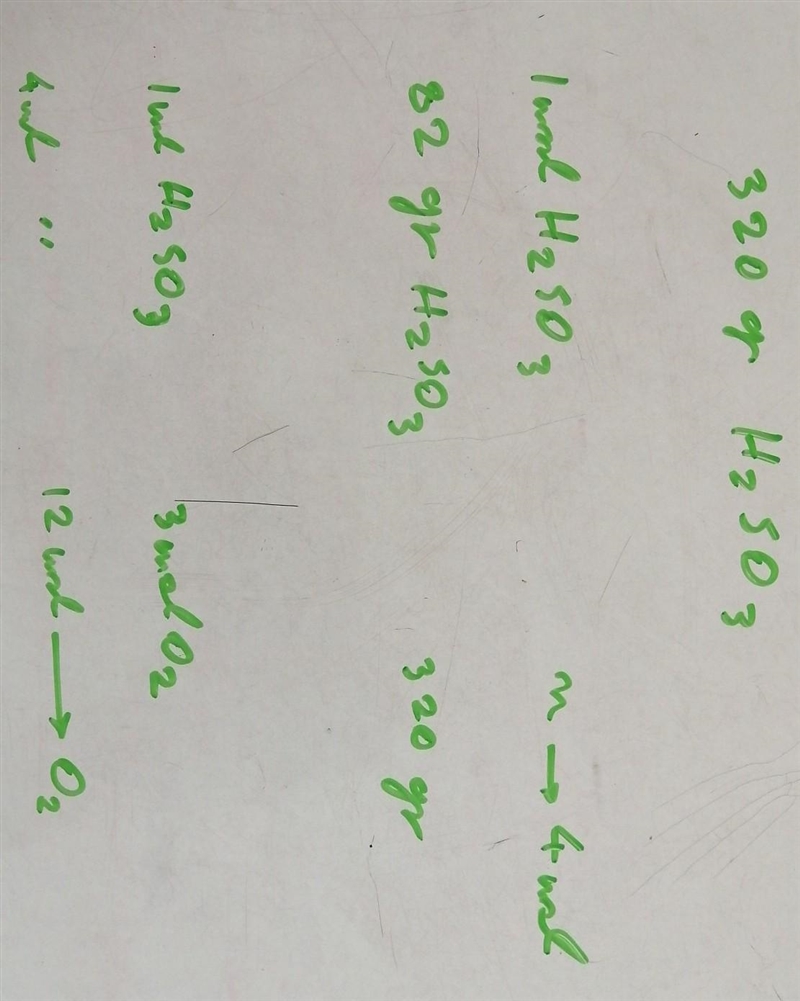 320 gr H2SO3
1 mol H2SO3 n → 4 mol
82 gr H2SO3 320 gr
1 mol H2SO3 3 mol O2
4 mol " 12 mol → O2